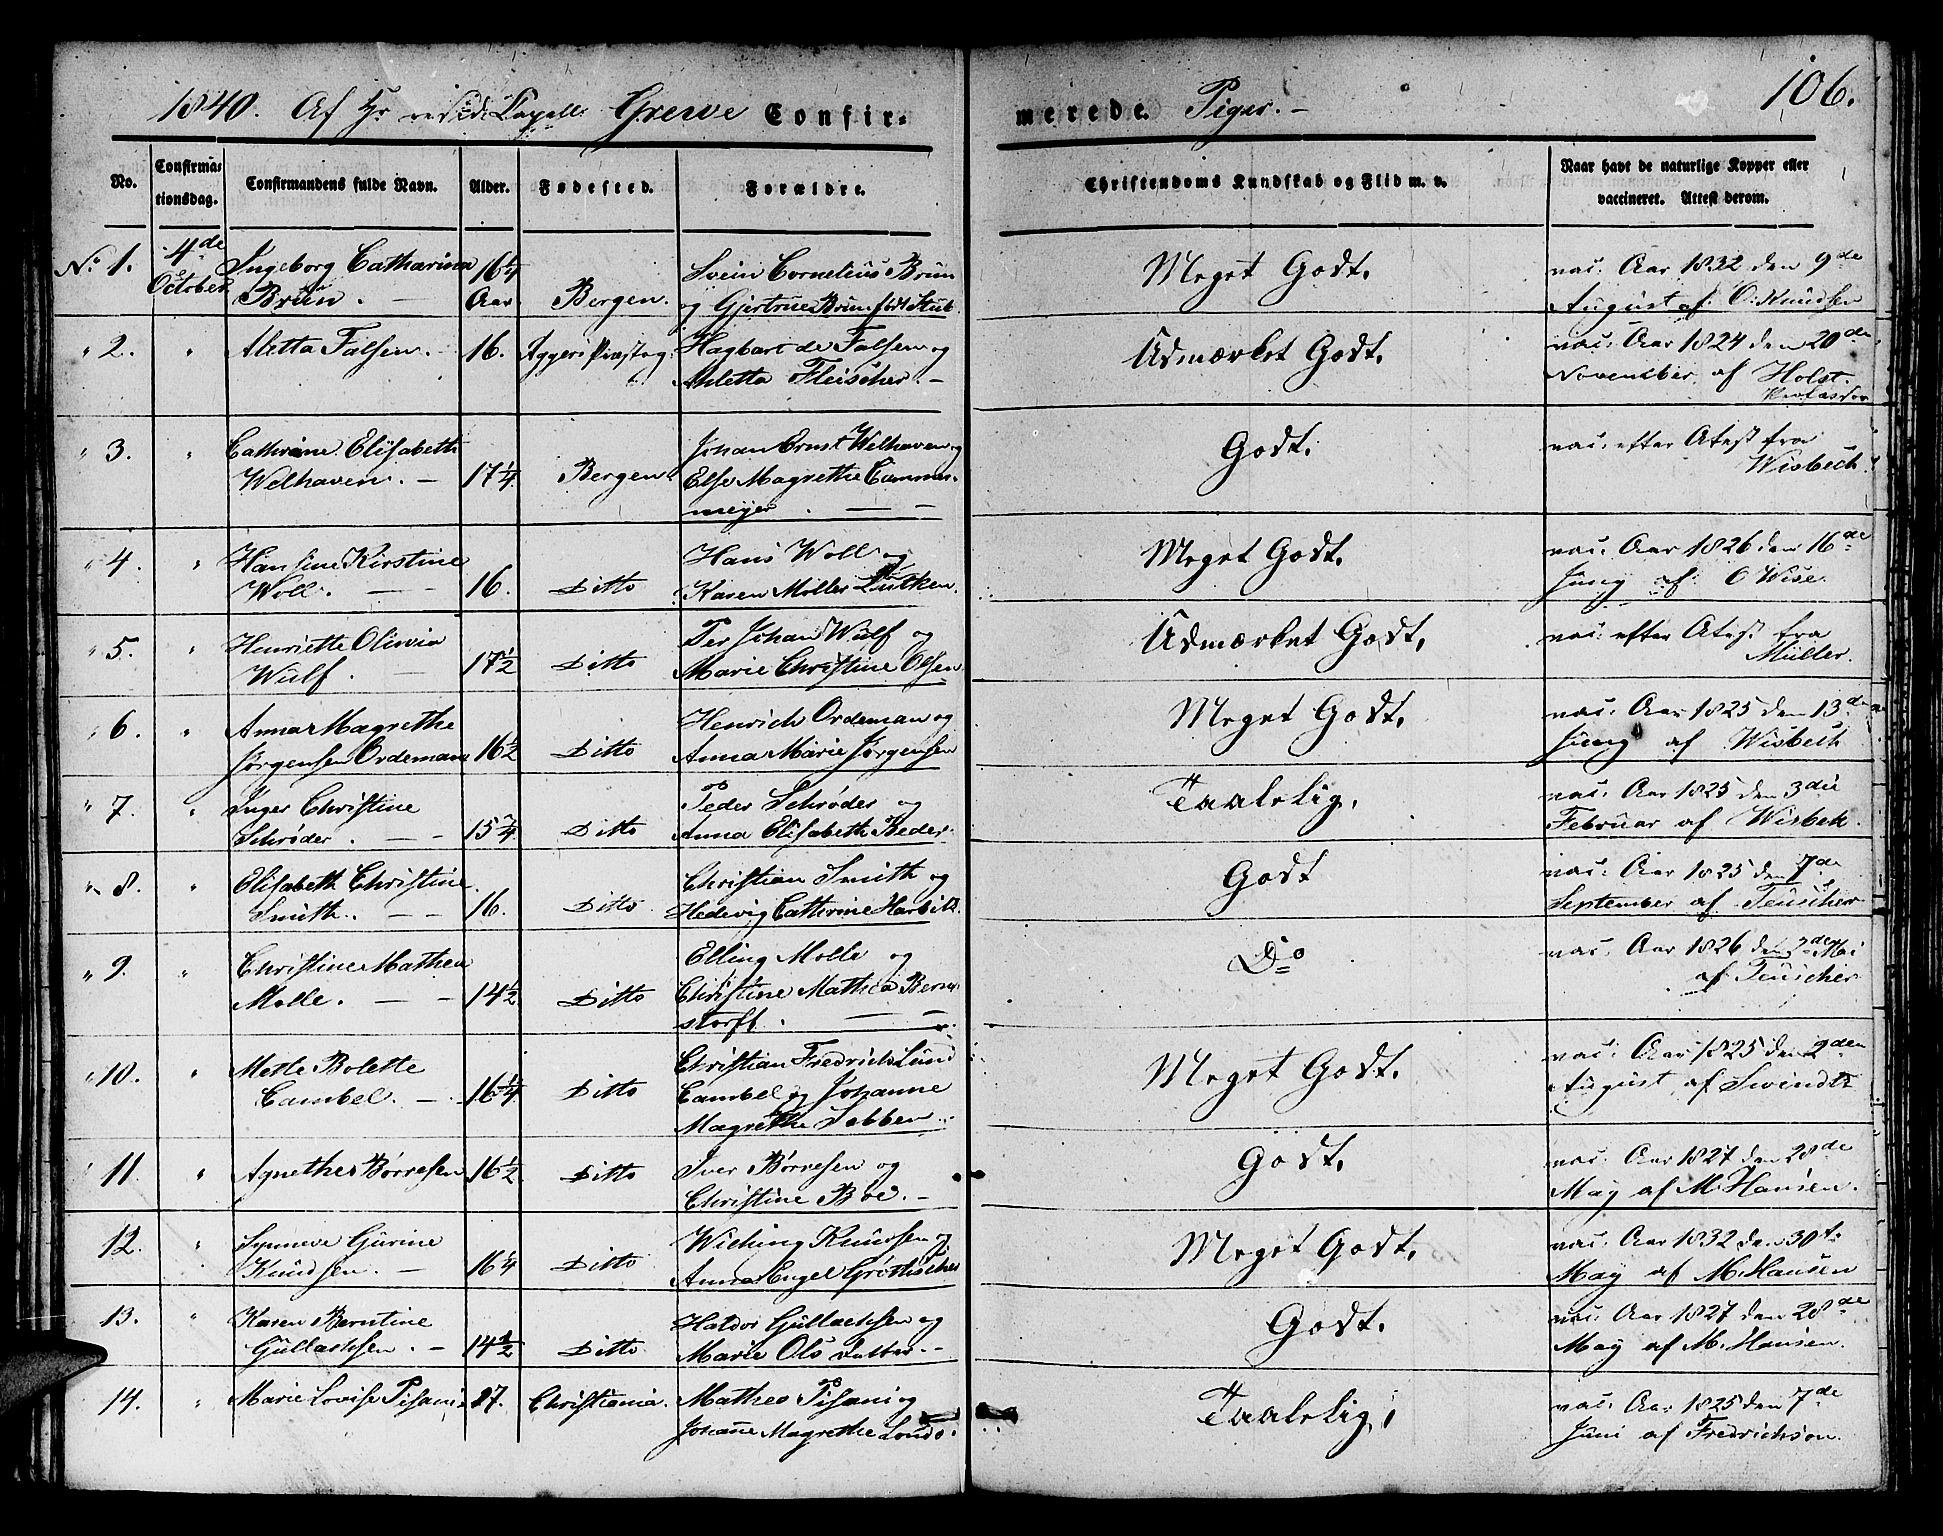 1840. Af Hr resid: Capell: Grewe Confir- merede Piger. - 106.
No. Confirma- tionsdag. Confirmandens fulde Navn. Alder. Fødested. Forældre. Christendoms Kundskab og Flid m. v. Naar havt de naturlige Kopper eller vaccineret. Attest derom.
No 1. 4de October Ingeborg Catharina Brun. - 16 1/4 Aar. Bergen. Svein Cornelius Brun og Gjertrue Brun født Stub. Meget Godt. vac: Aar 1832 den 9de August af: O: Knudsen
" 2. " Aletta Falsen. - 16. Aggers Præsteg: Hagbart de Falsen og Aletta Fleischer. - Udmærket Godt. vac: Aar 1824 den 20de November af Holst. Professor
" 3. " Cathrine Elisabeth Welhaven. - 17 1/4. Bergen Johan Ernst Welhaven og Else Magrethe Cammer- meyer. - - Godt. vac: efter Atest fra Wisbech.
" 4. " Hansine Kirstine Woll. - 16. Ditto Hans Woll og Karen Møller Lütken. Meget Godt. vac: Aar 1826 den 16de Juny af O Wise.
" 5. " Henriette Olivia Wulf. - 17 1/2 Ditto Per Johan Wulf og Marie Christine Olsen Udmærket Godt. vac: efter Atest fra Müller.
" 6. " Anna Magrethe Jørgensen Ordeman 16 1/2 Ditto Henrich Ordeman og Anna Marie Jørgensen Meget Godt. vac: Aar 1825 den 13de Juny af Wisbech
" 7. " Inger Christine Schrøder. - 15 3/4. Ditto Peder Schrøder og Anna Elisabeth Beder. Taalelig. vac: Aar 1825 den 3die Februar af Wisbek.
" 8. " Elisabeth Christine Smith. - - 16. Ditto. Christian Smith og Hedevig Catherine Harbitz. Godt vac: Aar 1825 den 7de September af Teuscher
" 9. " Christine Mathea Molle. - - 14 1/2 Ditto Elling Molle og Christine Mathea Bern- storft. - - Do vac. Aar 1826 den 2de Mai af Teuscher
" 10. " Mette Bolette Cambel. - 16 1/4 Ditto Christian Fredrich Lund Cambel og Johanne Magrethe Sebben. vac: Aar 1825 den 2den August af Swindt
Meget Godt.
" 11. " Agnethe Børresen 16 1/2. Ditto Iver Børresen og Christine Boe. - Godt. vac: Aar 1827 den 28de May af M. Hansen.
12. " Synneve Gurine Knudsen. - 16 1/4 Ditto Wiching Knudsen og Anna Engel Meget Godt. vac: Aar 1832 den 30t. May af M. Hansen
13. " Karen Berntine Gullachsen. - 14 1/2 Ditto Haldor Gullachsen og Marie Ols datter. - Godt. vac: Aar 1827 den 28de May af M. Hansen.
14. " Marie Lovise Pisani 17. Christiania. Matheo Pisani og Johane Magrethe Taalelig, vac: Aar 1825 den 7de Juni af Fredrichson.